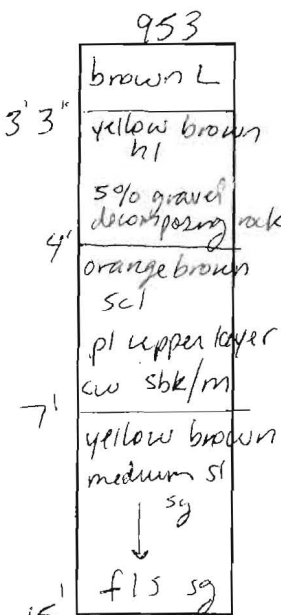 953
brown L
3' 3"
yellow brown
hl
5% gravel
decomposing rock
4'
orange brown
scl
pl upper layer
cw sbk/m
7'
yellow brown
medium sl
sg
fls sg
15'